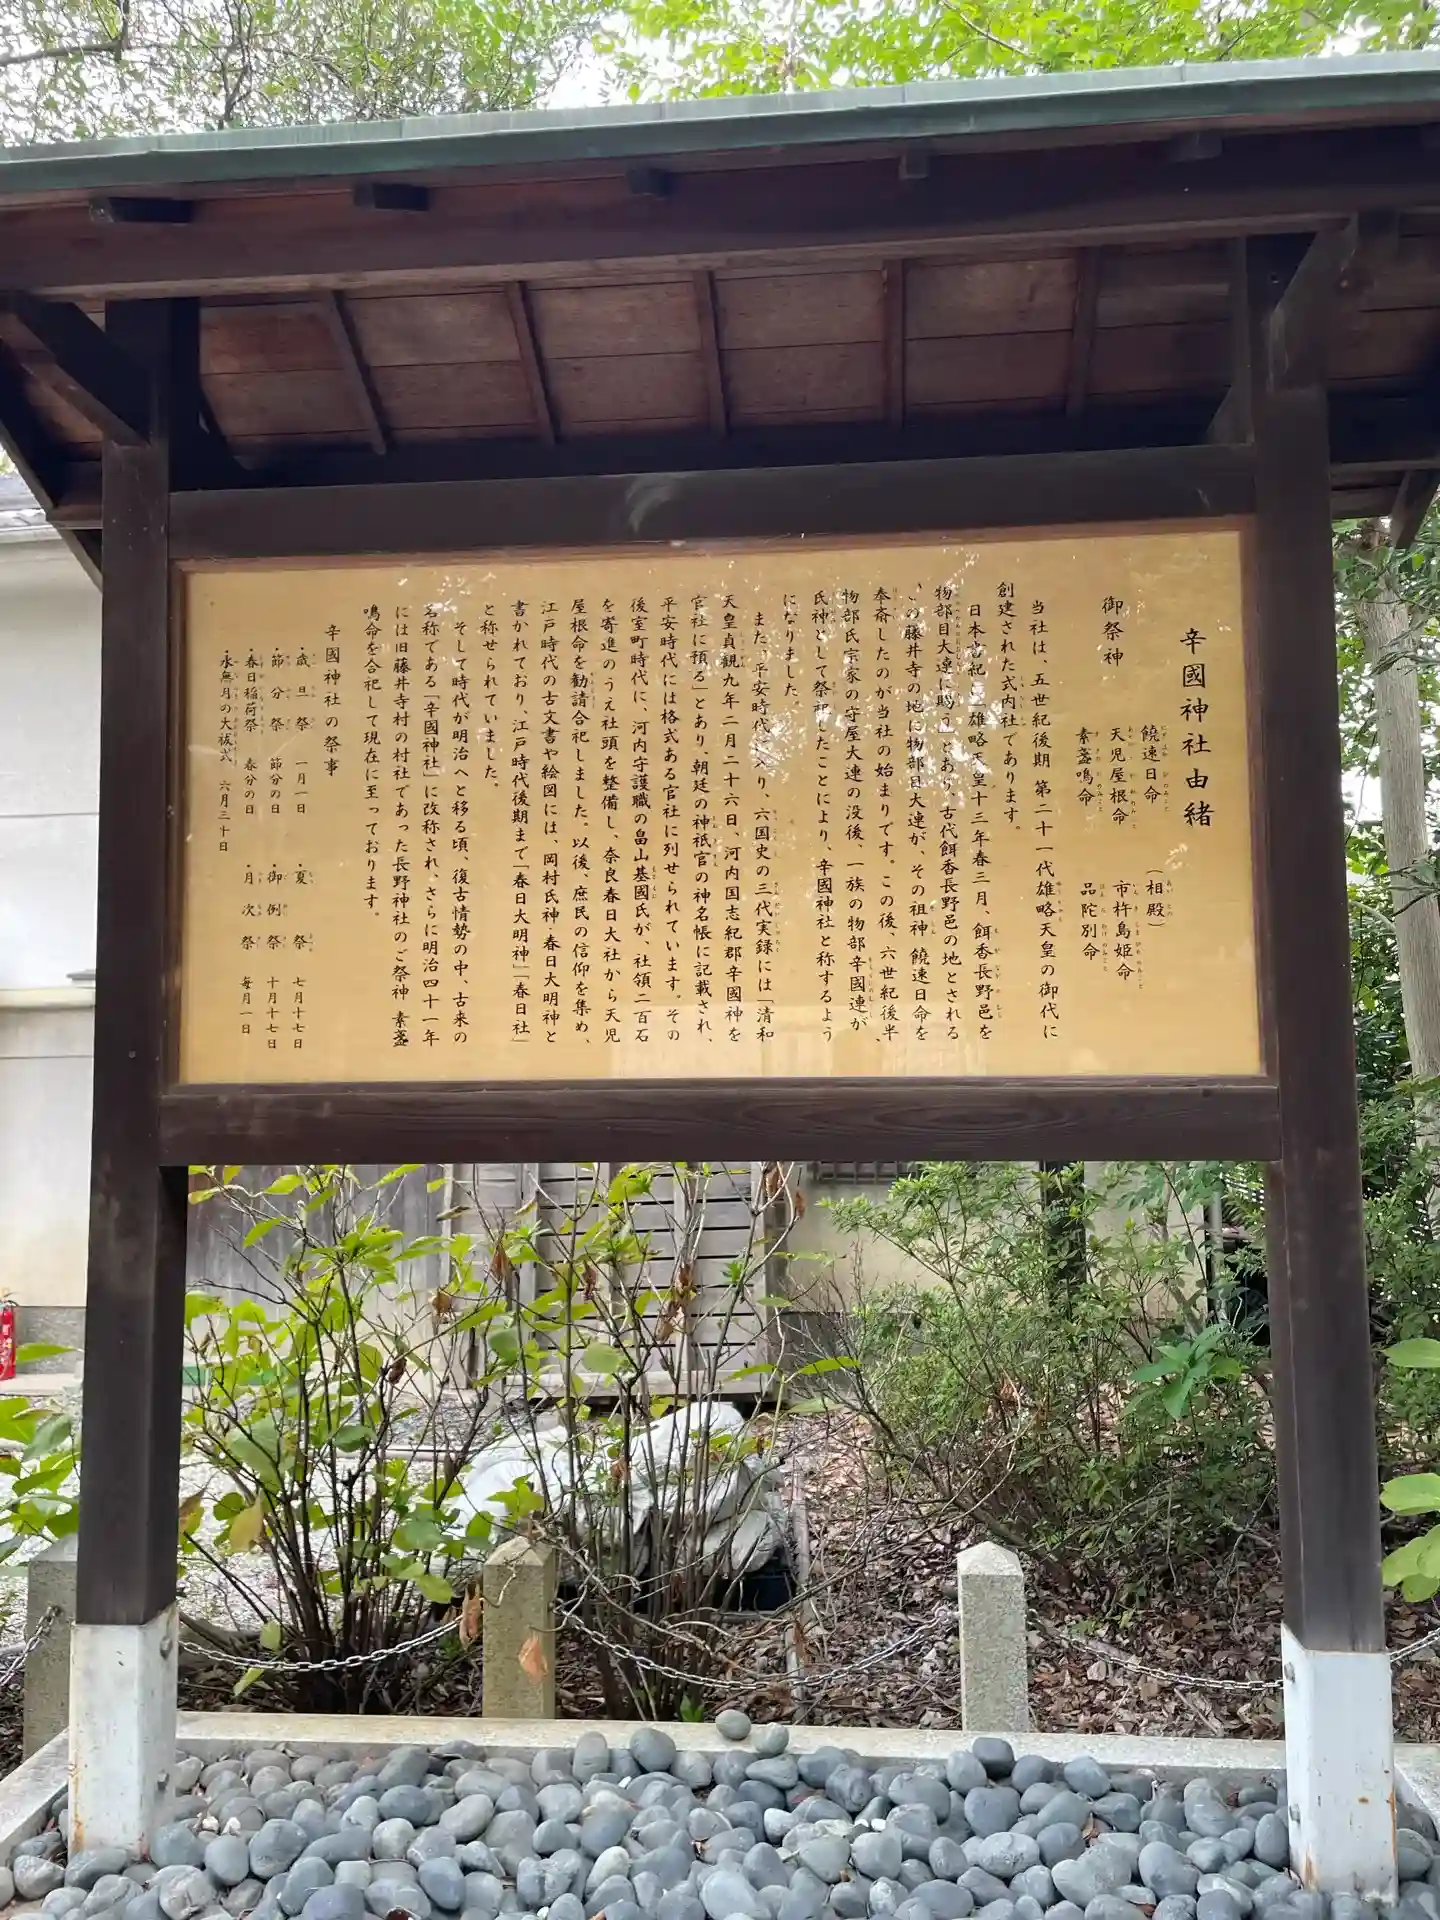 辛國神社由緒
御祭神
饒速日命 (相殿)
天児屋根命 市杵島姫命
素盞鳴命 品陀別命
当社は、五世紀後期 第二十一代雄略天皇の御代に
創建された式内社であります。
日本書紀に「雄略天皇十三年春三月、餌香長野邑を
物部目大連に賜う」とあり、古代餌香長野邑の地とされる
この藤井寺の地に物部目大連が、その祖神 饒速日命を
奉斎したのが当社の始まりです。この後、六世紀後半、
物部氏宗家の守屋大連の没後、一族の物部辛國連が、
氏神として祭祀したことにより、辛國神社と称するよう
になりました。
また、平安時代に入り、六国史の三代実録には「清和
天皇貞観九年二月二十六日、河内国志紀郡辛國神を
官社に預る」とあり、朝廷の神祇官の神名帳に記載され、
平安時代には格式ある官社に列せられています。その
後室町時代に、河内守護職の畠山基國氏が、社領二百石
を寄進のうえ社頭を整備し、奈良春日大社から天児
屋根命を勧請合祀しました。以後、庶民の信仰を集め、
江戸時代の古文書や絵図には、岡村氏神・春日大明神と
書かれており、江戸時代後期まで「春日大明神」「春日社」
と称せられていました。
そして時代が明治へと移る頃、復古情勢の中、古来の
名称である「辛國神社」に改称され、さらに明治四十一年
には旧藤井寺村の村社であった長野神社のご祭神 素盞
鳴命を合祀して現在に至っております。
辛國神社の祭事
・歳旦祭 一月一日 ・夏祭 七月十七日
・節分祭 節分の日 ・御例祭 十月十七日
・春日稲荷祭 春分の日 ・月次祭 毎月一日
・水無月の大祓式 六月三十日